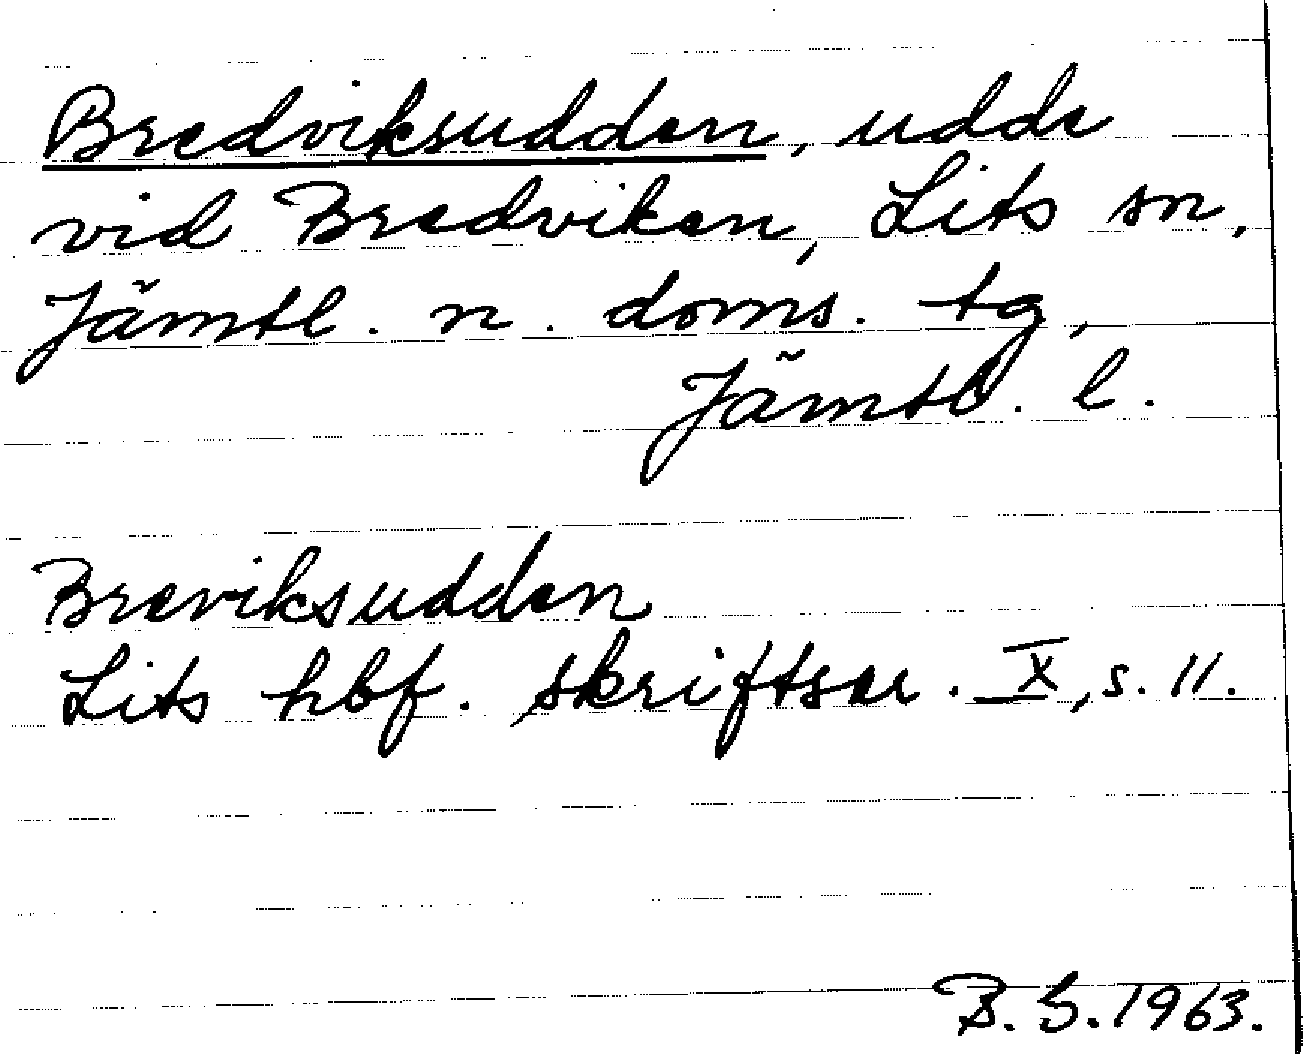 Bredviksudden, udde
vid Bredviken, Lits sn,
Jämtl. n. doms. tg,
Jämtl. l.
Breviksudden
Lits hbf. skriftser. X, s. 11.
B. S. 1963.